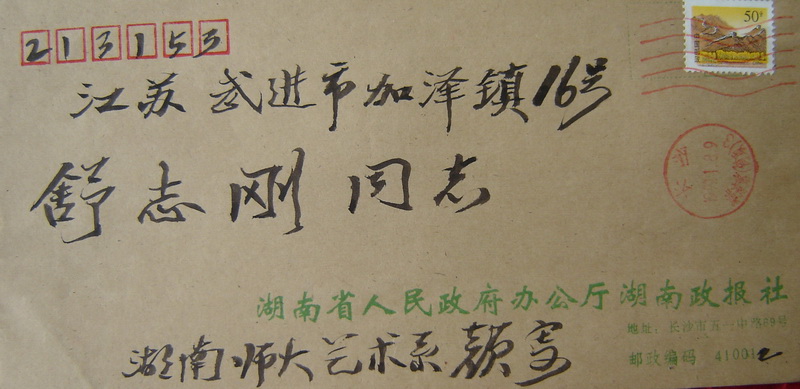 213153
50分
江苏武进市加泽镇16号
舒志刚同志
湖南省人民政府办公厅湖南政报社
地址：长沙市五一中路69号
湖南师大艺术系颜寄
邮政编码 410012